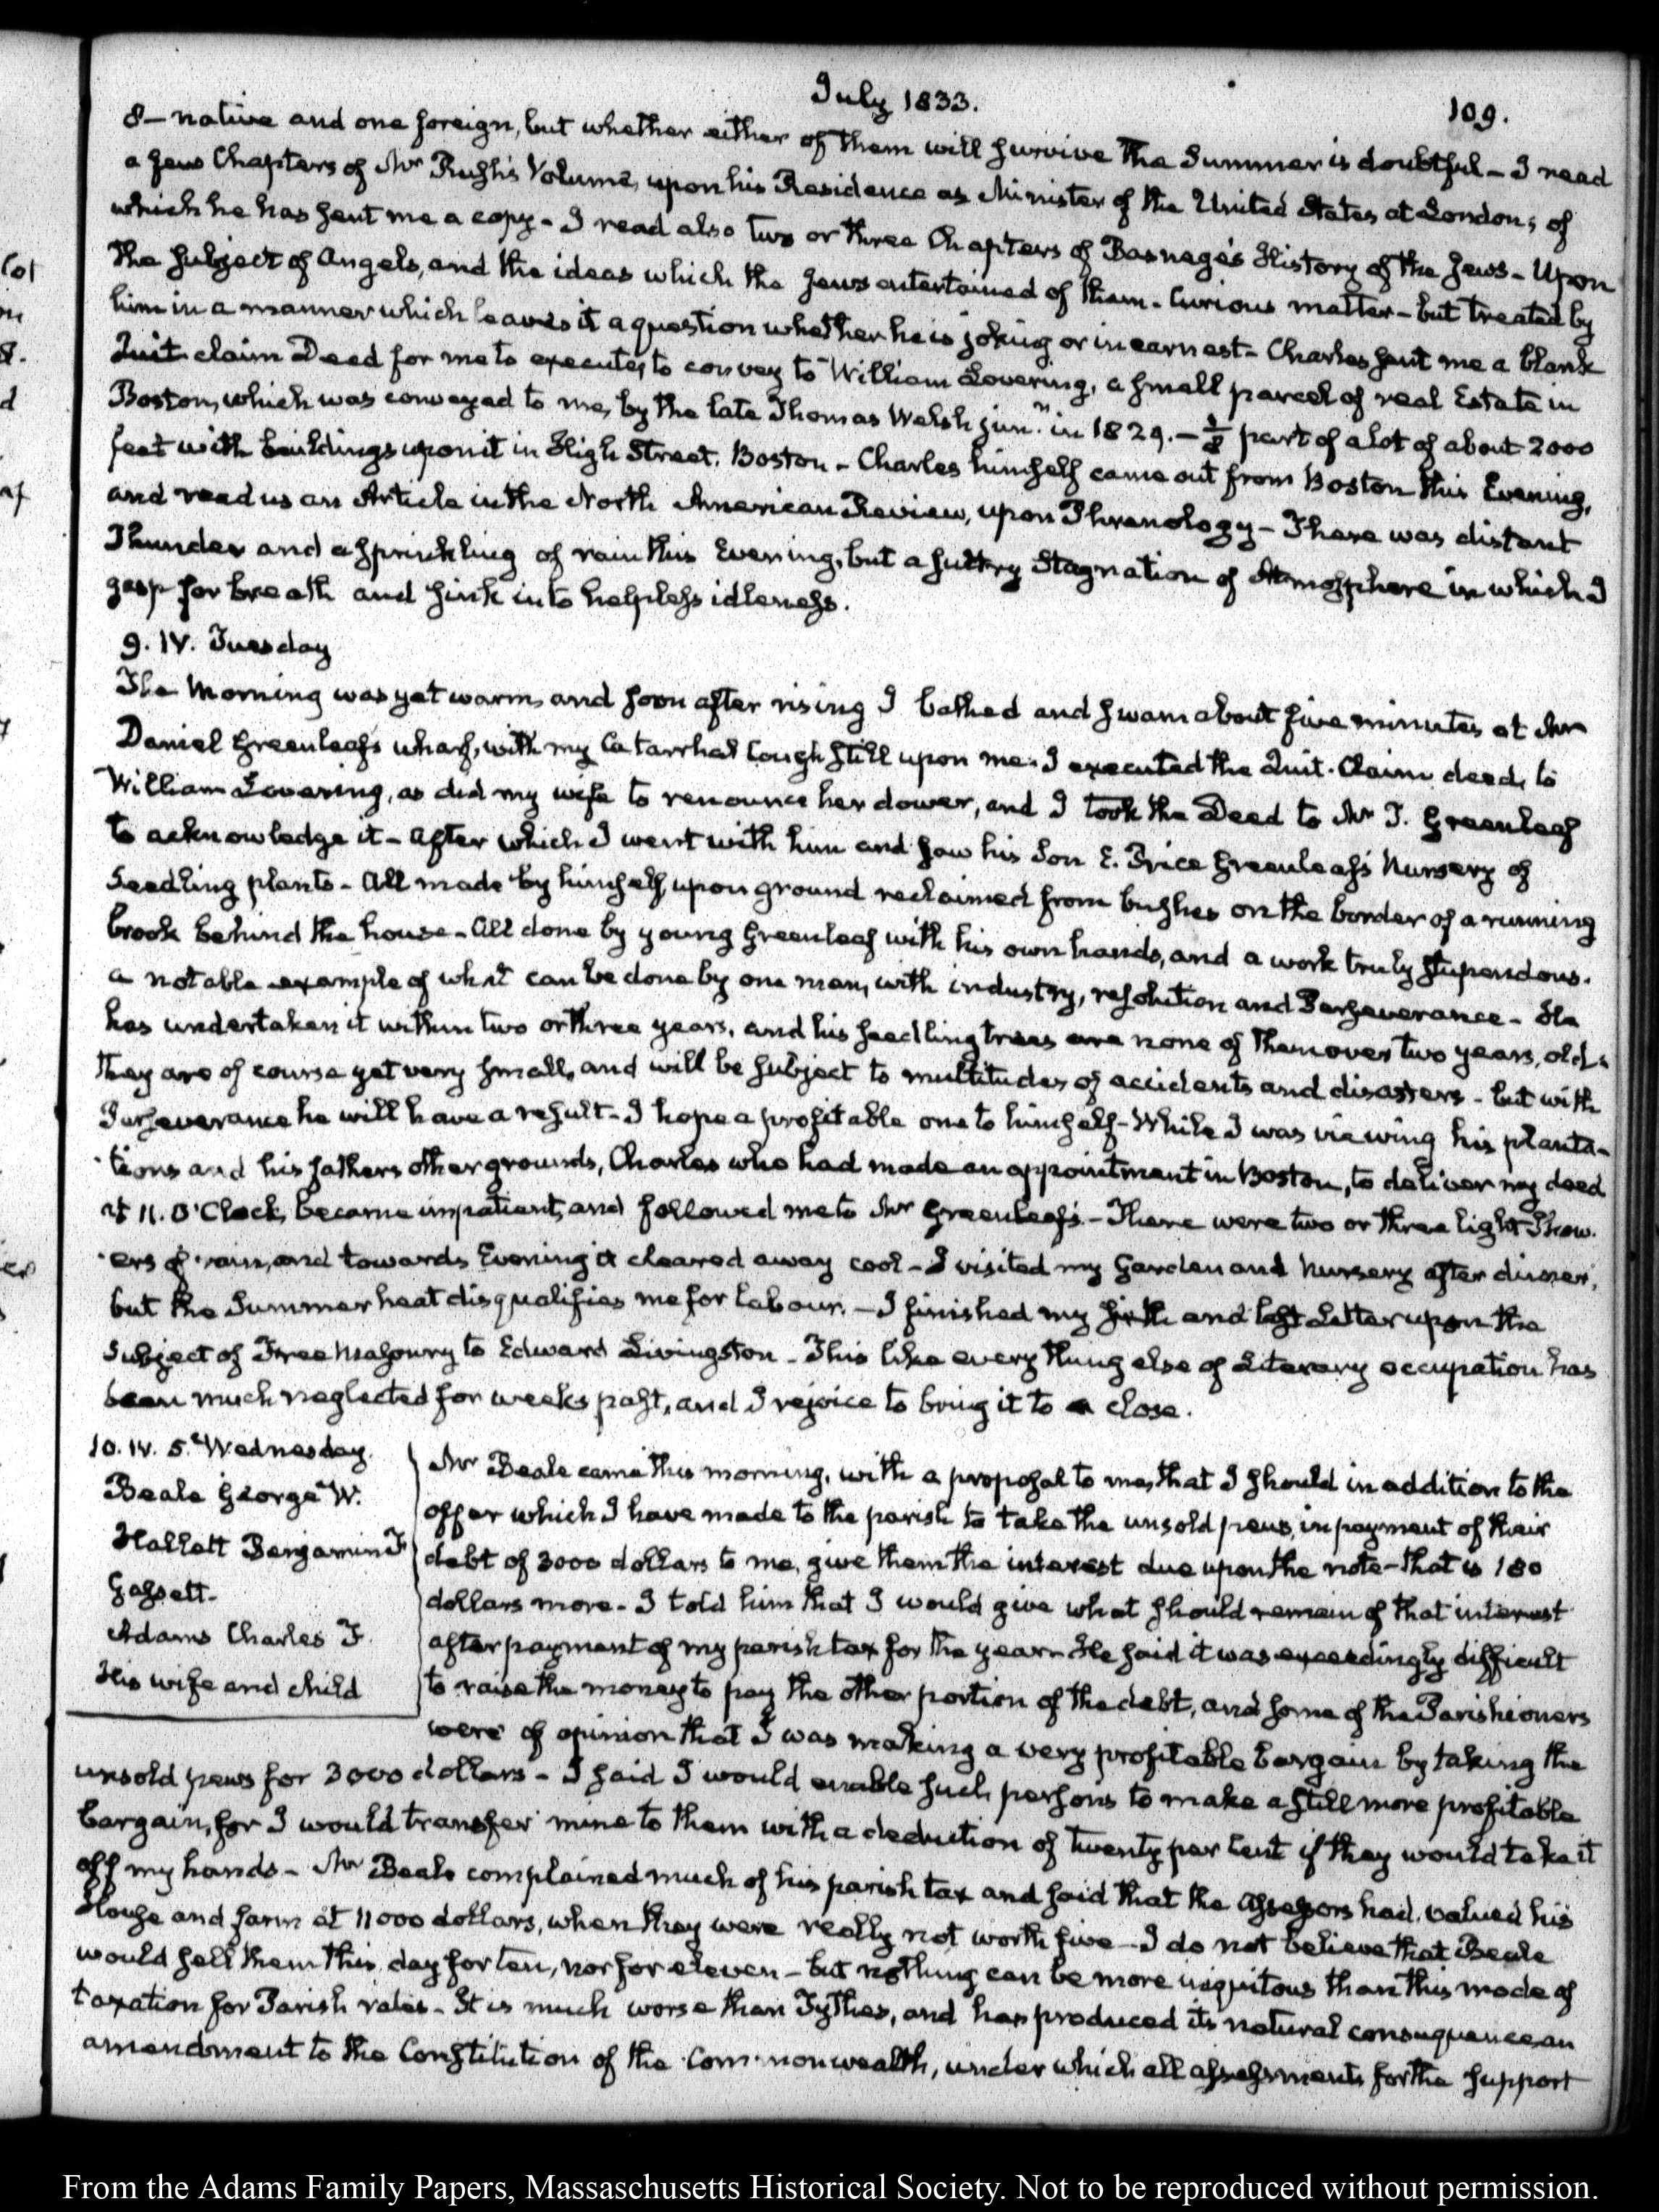 July 1833.
109.
8— native and one foreign, but whether either of them will survive the Summer is doubtful — I read
a few Chapters of Mr Rush's Volume, upon his Residence as Minister of the United States at London; of
which he has sent me a copy — I read also two or three Chapters of Basnage's History of the Jews — Upon
the subject of Angels, and the ideas which the Jews entertained of them — Curious matter — but treated by
him in a manner which leaves it a question whether he is joking or in earnest — Charles sent me a blank
Quit claim Deed for me to execute, to convey to William Lovering, a small parcel of real Estate in
Boston, which was conveyed to me, by the late Thomas Welsh junr. in 1829. — 1/8 part of a lot of about 2000
feet with buildings upon it in High Street, Boston — Charles himself came out from Boston this Evening,
and read us an Article in the North American Review, upon Phrenology — There was distant
Thunder and a sprinkling of rain this Evening, but a sultry Stagnation of Atmosphere in which I
gasp for breath and sink into helpless idleness.
9. IV. Tuesday
The Morning was yet warm, and soon after rising I bathed and swam about five minutes at Mr
Daniel Greenleaf's wharf, with my Catarrhal Cough still upon me. I executed the Quit-Claim deed, to
William Lovering, as did my wife to renounce her dower, and I took the Deed to Mr T. Greenleaf
to acknowledge it — After which I went with him and saw his Son E. Price Greenleaf's Nursery of
Seedling plants — All made by himself, upon ground reclaimed from bushes on the border of a running
brook behind the house — All done by young Greenleaf with his own hands, and a work truly stupendous.
a notable example of what can be done by one man, with industry, resolution and Perseverance — He
has undertaken it within two or three years, and his seedling trees are none of them over two years, old.
They are of course yet very small, and will be subject to multitudes of accidents and disasters — but with
Perseverance he will have a result — I hope a profitable one to himself — While I was viewing his planta-
tions and his fathers other grounds, Charles who had made an appointment in Boston, to deliver my deed
at 11. O'Clock, became impatient, and followed me to Mr Greenleaf's — There were two or three light Show-
ers of rain, and towards Evening it cleared away cool — I visited my Garden and Nursery after dinner,
but the Summer heat disqualifies me for labour. — I finished my sixth and last Letter upon the
Subject of Free Masonry to Edward Livingston — This like every thing else of Literary occupation has
been much neglected for weeks past, and I rejoice to bring it to a close.
10. IV. 5. Wednesday.
Beale George W.
Hallett Benjamin F
Gassett.
Adams Charles F.
His wife and child
Mr Beale came this morning, with a proposal to me, that I should in addition to the
offer which I have made to the parish to take the unsold pews, in payment of their
debt of 3000 dollars to me, give them the interest due upon the note — that is 180
dollars more — I told him that I would give what should remain of that interest
after payment of my parish tax for the year — He said it was exceedingly difficult
to raise the money to pay the other portion of the debt, and some of the Parishioners
were of opinion that I was making a very profitable bargain by taking the
unsold pews for 3000 dollars — I said I would enable such persons to make a still more profitable
bargain, for I would transfer mine to them with a deduction of twenty per Cent if they would take it
off my hands — Mr Beale complained much of his parish tax and said that the Assessors had valued his
House and farm at 11000 dollars, when they were really not worth five — I do not believe that Beale
would sell them this day for ten, nor for eleven — but nothing can be more iniquitous than this mode of
taxation for Parish rates — It is much worse than Tythes, and has produced its natural consequence, an
amendment to the Constitution of the Commonwealth, under which all assessments for the support
From the Adams Family Papers, Massachusetts Historical Society. Not to be reproduced without permission.